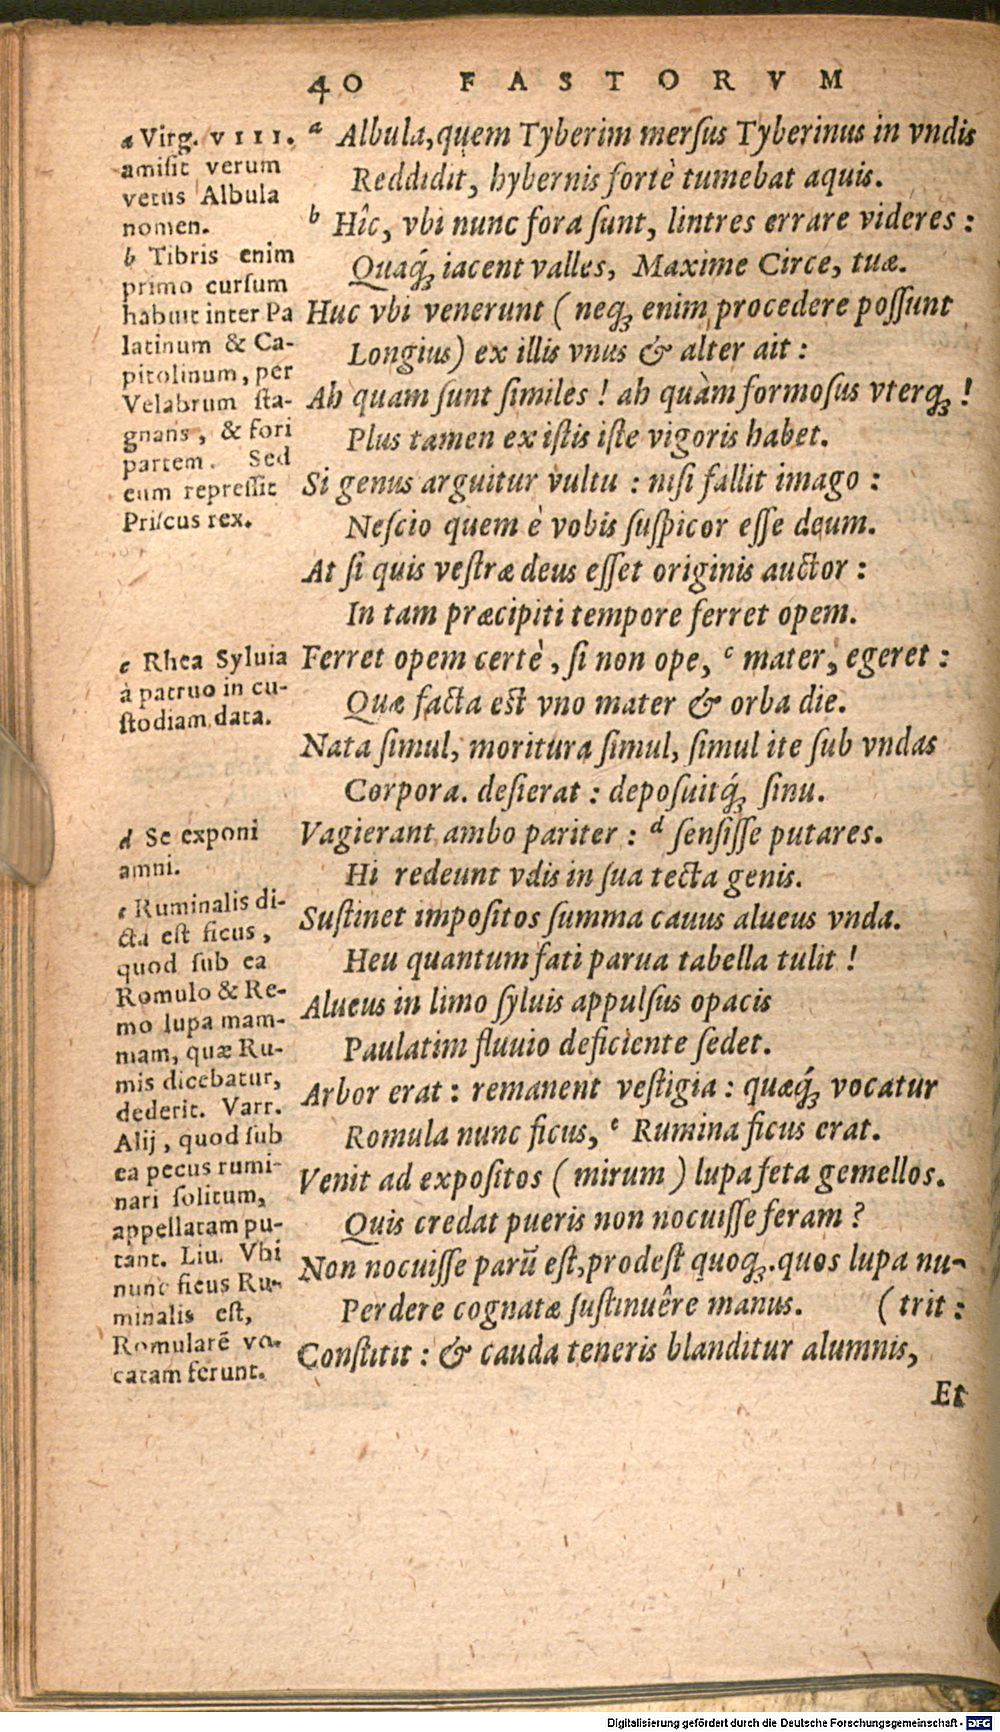 40 FASTORVM
a Virg. VIII.
amisit verum
vetus Albula
nomen.
b Tibris enim
primo cursum
habuit inter Pa
latinum & Ca-
pitolinum, per
Velabrum sta-
gnans, & fori
partem. Sed
eum repressit
Priscus rex.
c Rhea Syluia
à patruo in cu-
stodiam data.
d Se exponi
amni.
e Ruminalis di-
cta est ficus,
quod sub ea
Romulo & Re-
mo lupa mam-
mam, quæ Ru-
mis dicebatur,
dederit. Varr.
Alij, quod sub
ea pecus rumi-
nari solitum,
appellatam pu-
tant. Liu. Vbi
nunc ficus Ru-
minalis est,
Romularẽ vo-
catam ferunt.
a Albula, quem Tyberim mersus Tyberinus in vndis
Reddidit, hybernis fortè tumebat aquis.
b Hîc, vbi nunc fora sunt, lintres errare videres:
Quaq́ꝫ iacent valles, Maxime Circe, tuæ.
Huc vbi venerunt (neqꝫ enim procedere possunt
Longius) ex illis vnus & alter ait:
Ah quam sunt similes! ah quàm formosus vterqꝫ!
Plus tamen ex istis iste vigoris habet.
Si genus arguitur vultu: nisi fallit imago:
Nescio quem è vobis suspicor esse deum.
At si quis vestræ deus esset originis auctor:
In tam præcipiti tempore ferret opem.
Ferret opem certè, si non ope, c mater, egeret:
Quæ facta est vno mater & orba die.
Nata simul, moritura simul, simul ite sub vndas
Corpora. desierat: deposuitq́ꝫ sinu.
Vagierant ambo pariter: d sensisse putares.
Hi redeunt vdis in sua tecta genis.
Sustinet impositos summa cauus alueus vnda.
Heu quantum fati parua tabella tulit!
Alueus in limo syluis appulsus opacis
Paulatim fluuio deficiente sedet.
Arbor erat: remanent vestigia: quæq́ꝫ vocatur
Romula nunc ficus, e Rumina ficus erat.
Venit ad expositos (mirum) lupa feta gemellos.
Quis credat pueris non nocuisse feram?
Non nocuisse parũ est, prodest quoqꝫ. quos lupa nu-
Perdere cognatæ sustinuêre manus. (trit:
Constitit: & cauda teneris blanditur alumnis,
Et
Digitalisierung gefördert durch die Deutsche Forschungsgemeinschaft - DFG